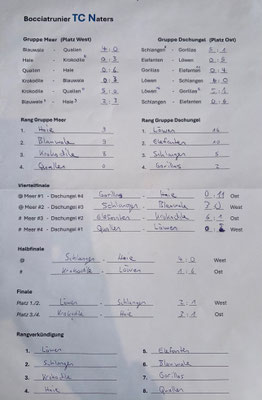 Bocciatrunier TC Naters
Gruppe Meer (Platz West) Gruppe Dschungel (Platz Ost)
Blauwale - Quallen 4:0 Schlangen - Gorillas 5:1
Haie - Krokodile 0:3 Elefanten - Löwen 0:5
Quallen - Haie 0:6 Gorillas - Elefanten 0:4
Krokodile - Blauwale Löwen - Schlangen
Krokodile - Quallen 5:0 Löwen - Gorillas
Blauwale - Haie Schlangen - Elefanten
Rang Gruppe Meer Rang Gruppe Dschungel
1. Haie 1. Löwen
2. Blauwale 2. Elefanten
3. Krokodile 3. Schlangen
4. Quallen 0 4. Gorillas
Viertelfinale
@ Meer #1 - Dschungel #4 Gorillas - Haie 0:11 Ost
@ Meer #2 - Dschungel #3 Schlangen - Blauwale West
# Meer #3 - Dschungel #2 Elefanten - Krokodile Ost
# Meer #4 - Dschungel #1 Quallen - Löwen West
Halbfinale
@ Schlangen - Haie 4:0 West
# Krokodile - Löwen 1:6 Ost
Finale
Platz 1./2. Löwen - Schlangen West
Platz 3./4. Krokodile - Haie Ost
Rangverkündigung
1. Löwen 5. Elefanten
2. Schlangen 6. Blauwale
3. Krokodile 7. Gorillas
4. Haie 8. Quallen